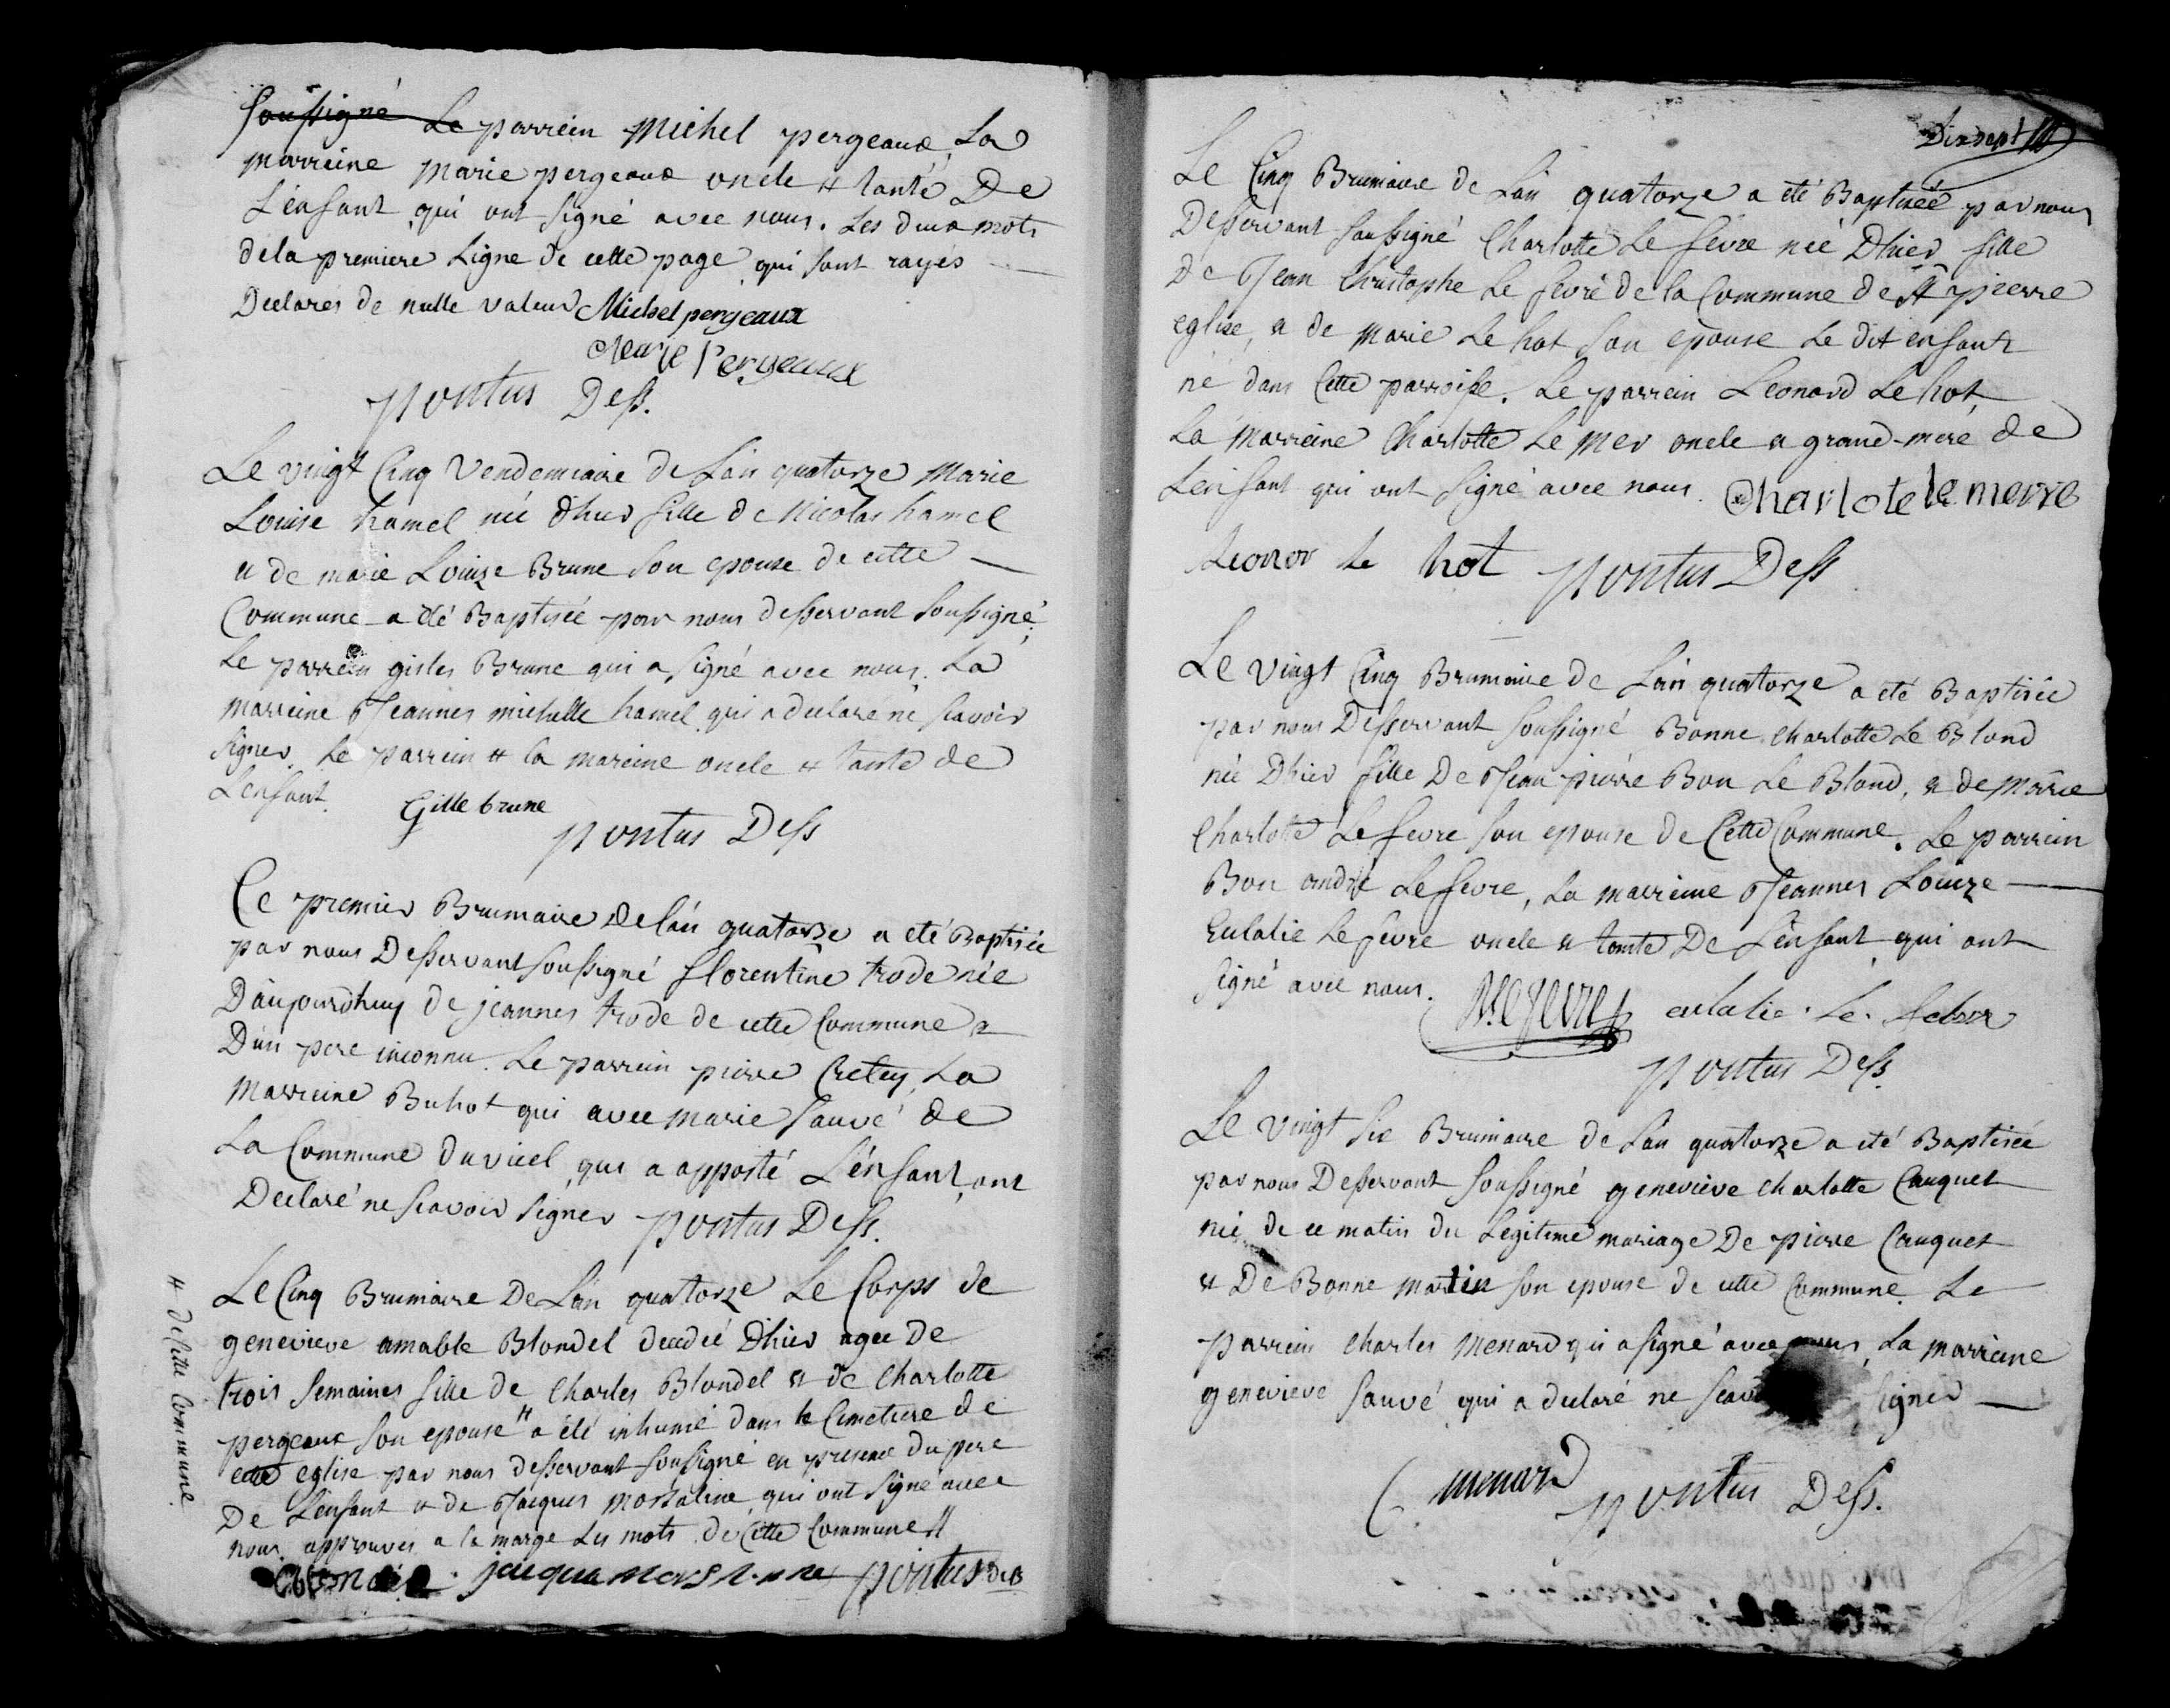 soussigné Le parrein Michel pergeaux, La
marreine marie pergeaux oncle & tante De
L'enfant qui ont signé avec nous. Les deux mots
dela premiere Ligne de cette page qui sont rayés
Declarés de nulle valeur Michel pergeaux
Marie Pergeaux
pontus Dess.
Le vingt Cinq Vendemiaire de L'an quatorze Marie
Louise hamel née d'hier fille de Nicolas hamel
& de marie Louize Brune son epouse de cette
Commune a été Baptisée par nous desservant soussigné
Le parrein gisles Brune qui a signé avec nous. La
marreine Jeannes michelle hamel qui a declaré ne scavoir
signer. Le parrein & la mareine oncle & tante de
L'enfant. Gille brune
pontus Dess
Ce premier Brumaire De L'an quatorze a eté Baptisée
par nous Desservant soussigné florentine trode née
D'aujourdhuy de jeannes trode de cette Commune &
D'un pere inconnu. Le parrein pierre Cretey, La
Marreine Buhot qui avec marie sauvé de
La Commune du vicel qui a apporté L'enfant, ont
Declaré ne scavoir signer pontus Dess.
Le Cinq Brumaire De L'an quatorze Le Corps de
genevieve amable Blondel decedée D'hier agée De
trois semaines fille de Charles Blondel & de Charlotte
pergeaux son epouse # a été inhumé dans le Cimetiere de
cette eglise par nous desservant soussigné en presence du pere
De L'enfant & de Jacques Mortaline qui ont signé avec
nous. approuvés a la marge Les mots de Cette Commune #
jaque pontus Dess
# de Cette Commune.
Dixsept
Le Cinq Brumaire de L'an quatorze a été Baptisée par nous
Desservant soussigné Charlotte Le fevre née D'hier fille
De Jean Christophe Le fevre de la Commune de St pierre
eglise, & de Marie Le hot son epouse Le dit enfant
né dans Cette parroisse. Le parrein Leonard Le hot,
La marreine Charlotte Le Mer oncle & grand-mere de
L'enfant qui ont signé avec nous. Charlote le merre
Leonor le hot pontus Dess
Le vingt Cinq Brumaire de L'an quatorze a été Baptisée
par nous Desservant soussigné Bonne Charlotte Le Blond
née D'hier fille De Jean pierre Bon Le Blond, & de Marie
Charlotte Le fevre son epouse de Cette Commune. Le parrein
Bon andré Le fevre, La marreine Jeannes Louize
Eulalie Le fevre oncle & tante De L'enfant qui ont
signé avec nous. eulalie Le
pontus Dess.
Le vingt six Brumaire de L'an quatorze a été Baptisée
par nous Desservant soussigné genevieve Charlotte Cauquet
née de ce matin du Legitime mariage De pierre Cauquet
& De Bonne martin son epouse de cette Commune. Le
parrein Charles Menard qui a signé avec nous, La marreine
genevieve sauvé qui a declaré ne signer
C. menard
pontus Dess.